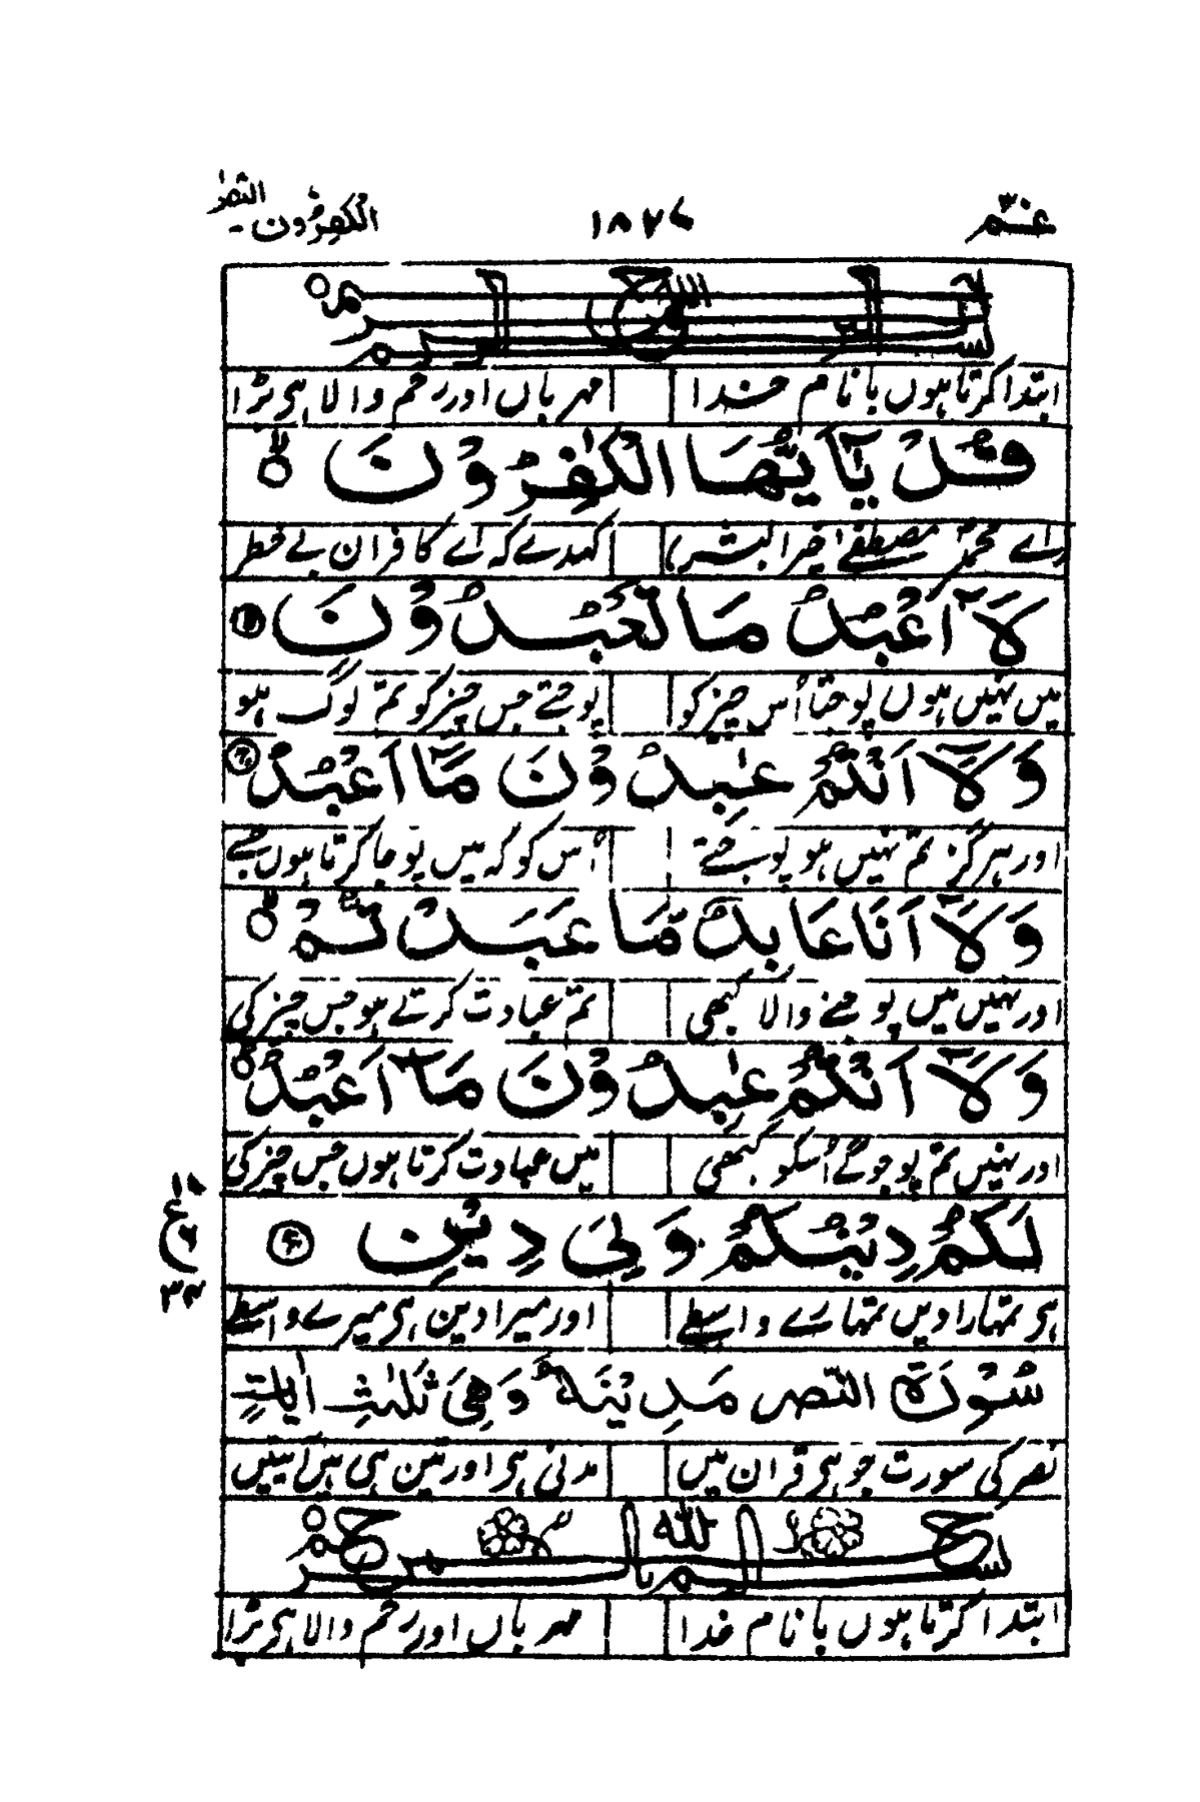 عمّ ١٨٧٤ الکٰفرون۔ النصر
بسم الله الرحمن الرحيم
ابتدا کرتا ہوں با نام خدا مہرباں اور رحم والا ہی بڑا
قُلْ يٰٓاَيُّهَا الْكٰفِرُوْنَ ۙ
اے محمدؐ مصطفےٰ خیر البشر کہدے کہ اے کافران بے خطر
لَآ اَعْبُدُ مَا تَعْبُدُوْنَ
میں نہیں ہوں پوجتا اُس چیز کو پوجتے جس چیز کو تم لوگ ہو
وَلَآ اَنْتُمْ عٰبِدُوْنَ مَآ اَعْبُدُ
اور ہرگز تم نہیں ہو پوجتے اُس کو کہ میں پوجا کرتا ہوں جسے
وَلَآ اَنَا عَابِدٌ مَّا عَبَدْتُّمْ ۙ
اور نہیں میں پوجنے والا کبھی تم عبادت کرتے ہو جس چیز کی
وَلَآ اَنْتُمْ عٰبِدُوْنَ مَآ اَعْبُدُ
اور نہیں تم پوجوگے اُسکو کبھی میں عبادت کرتا ہوں جس چیز کی
لَكُمْ دِيْنُكُمْ وَلِيَ دِيْنِ
ہی تمہارا دیں تمہارے واسطے اور میرا دین ہی میرے واسطے
سُوْرَةُ النصر مَدِيْنَةٌ وَهِيَ ثَلٰثُ اٰيَاتٍ
نصر کی سورت جو ہی قرآن میں مدنی ہی اور تین ہی ہیں آیتیں
بسم الله الرحمن الرحيم
ابتدا کرتا ہوں با نام خدا مہرباں اور رحم والا ہی بڑا